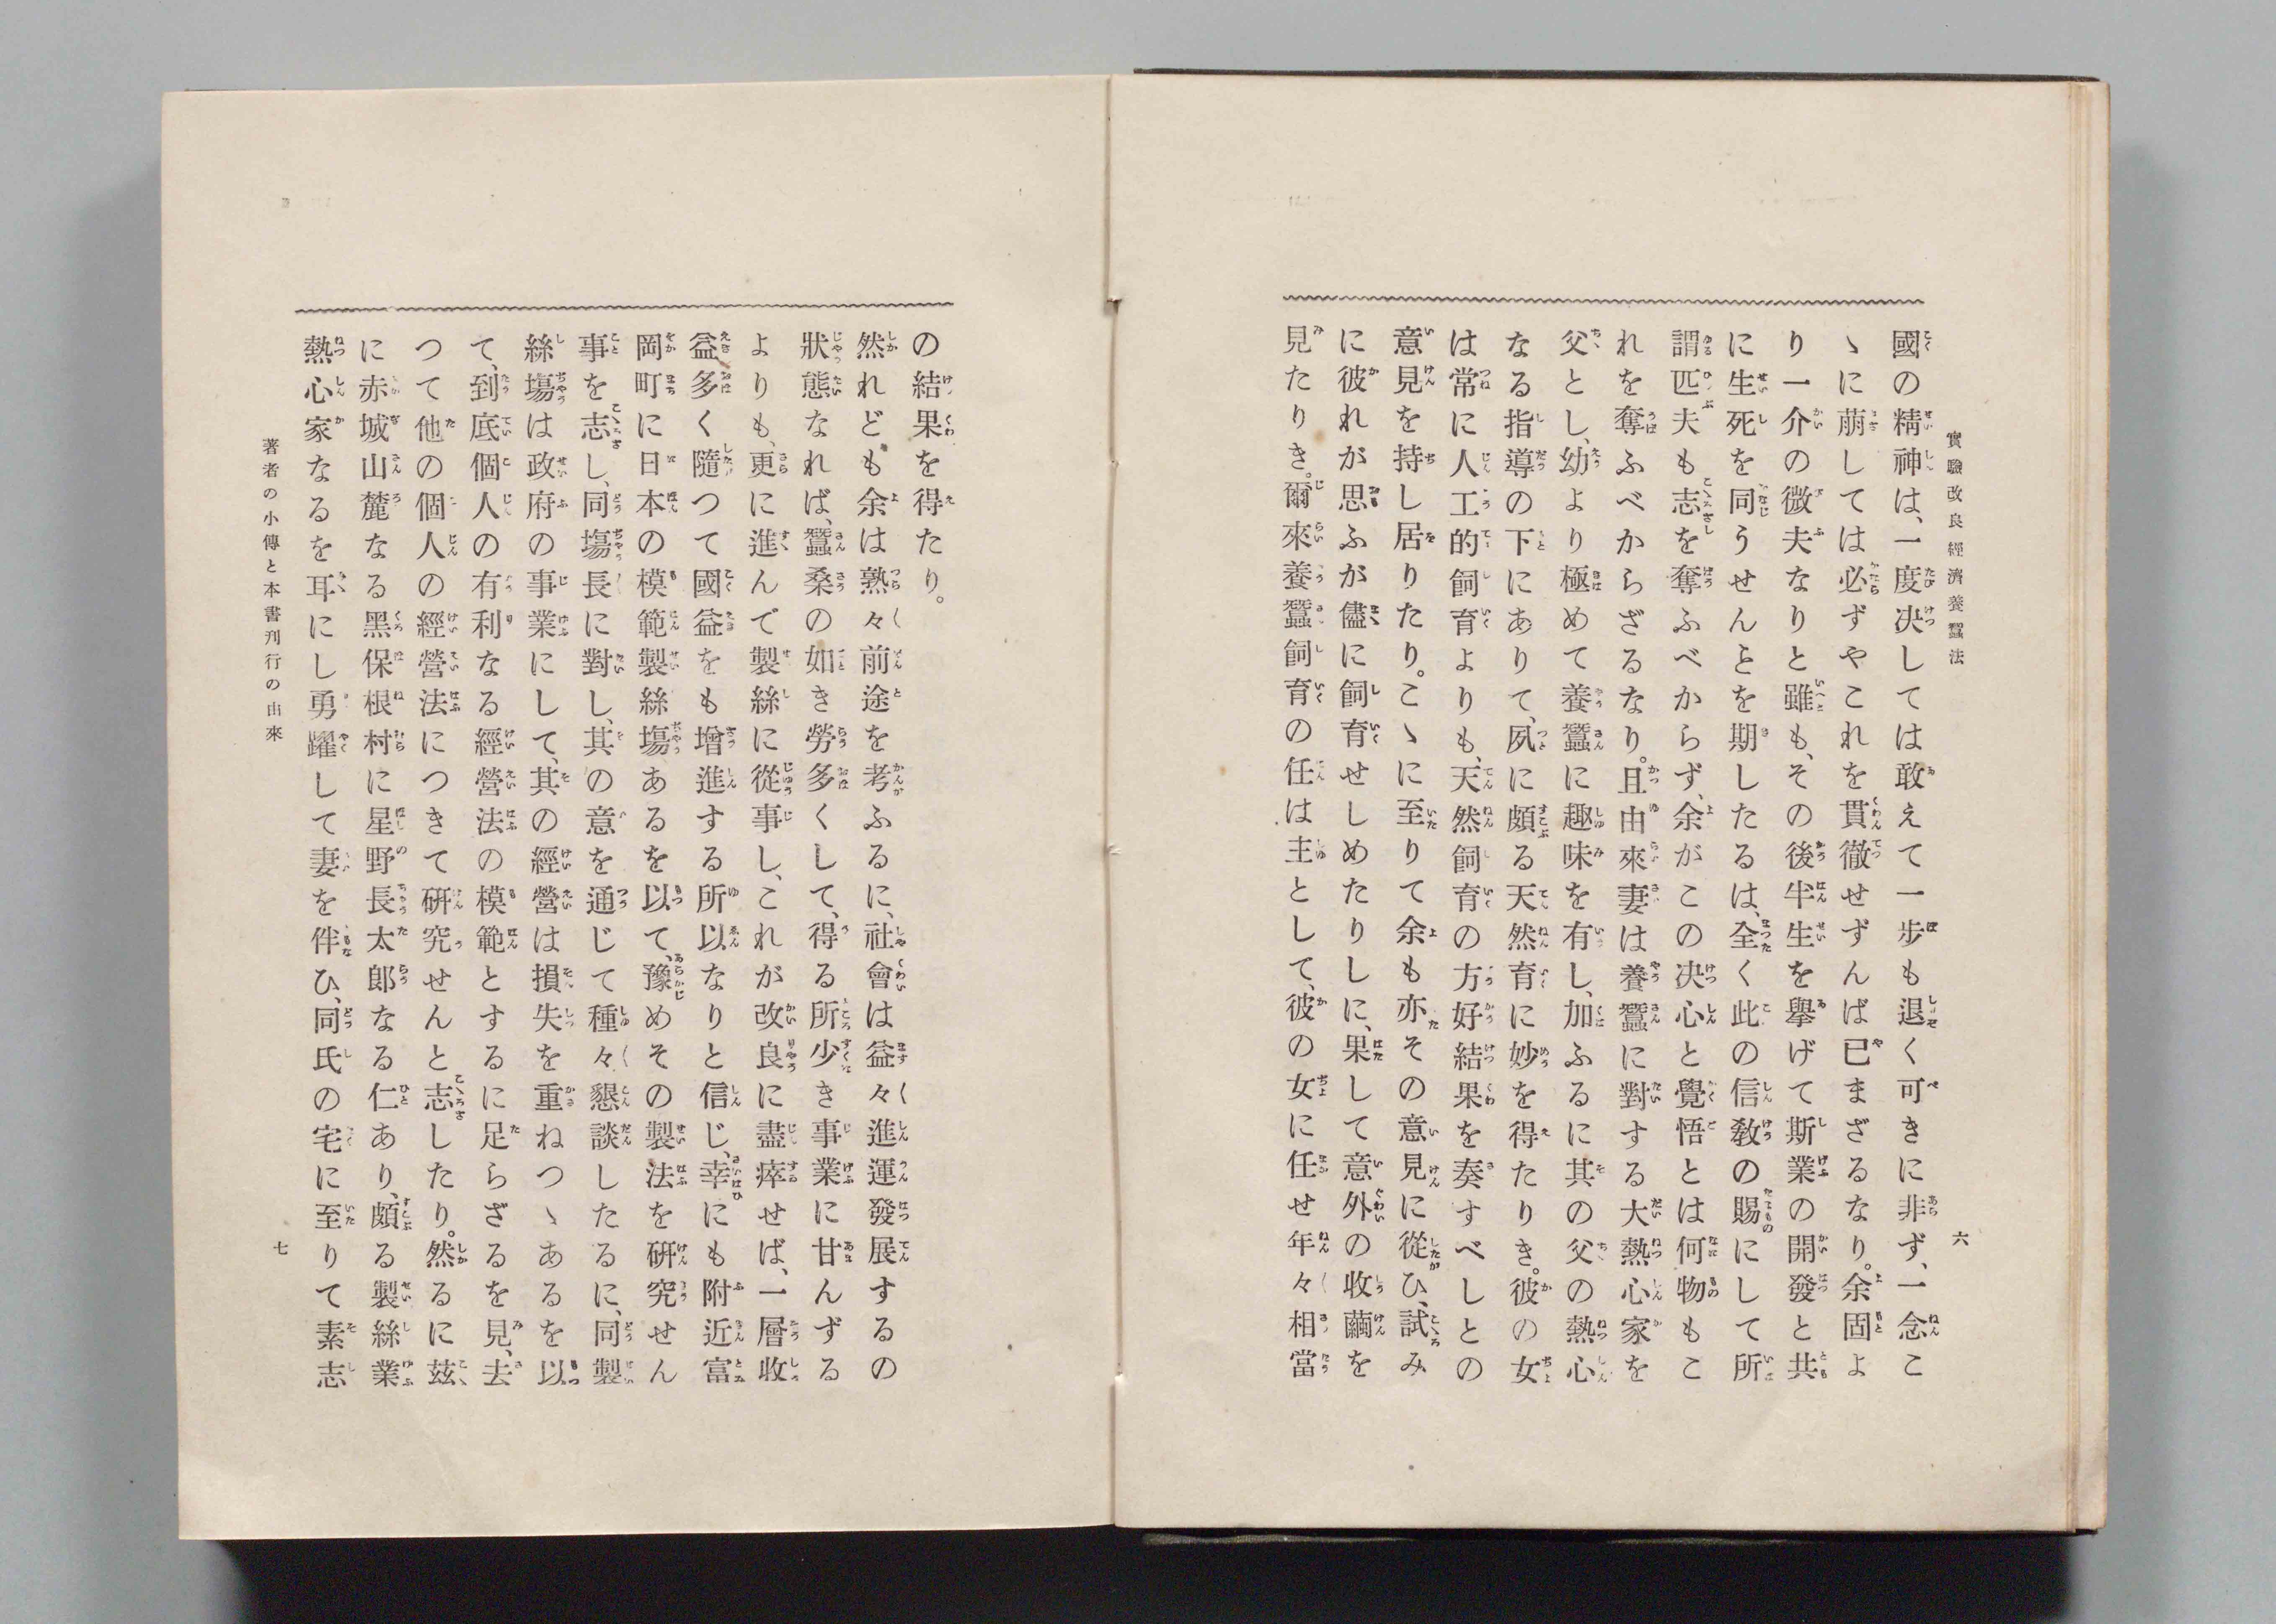 實驗改良經濟養蠶法
六
國の精神は、一度決しては敢えて一步も退く可きに非ず、一念こ
ゝに萠しては必ずやこれを貫徹せずんば已まざるなり。余固よ
り一介の微夫なりと雖も、その後半生を擧げて斯業の開發と共
に生死を同うせんとを期したるは、全く此の信敎の賜にして所
謂匹夫も志を奪ふべからず、余がこの决心と覺悟とは何物もこ
れを奪ふべからざるなり。且由來妻は養蠶に對する大熱心家を
父とし、幼より極めて養蠶に趣味を有し、加ふるに其の父の熱心
なる指導の下にありて、夙に頗る天然育に妙を得たりき。彼の女
は常に人工的飼育よりも、天然飼育の方好結果を奏すべしとの
意見を持し居りたり。こゝに至りて余も亦その意見に從ひ、試み
に彼れが思ふが儘に飼育せしめたりしに、果して意外の收繭を
見たりき。爾來養蠶飼育の任は主として、彼の女に任せ年々相當
の結果を得たり。
然れども余は熟々前途を考ふるに、社會は益々進運發展するの
狀態なれば、蠶桑の如き勞多くして、得る所少き事業に甘んずる
よりも、更に進んで製絲に從事し、これが改良に盡瘁せば、一層收
益多く隨つて國益をも增進する所以なりと信じ、幸にも附近富
岡町に日本の模範製絲塲あるを以て、豫めその製法を研究せん
事を志し、同塲長に對し、其の意を通じて種々懇談したるに、同製
絲塲は政府の事業にして、其の經營は損失を重ねつゝあるを以
て、到底個人の有利なる經營法の模範とするに足らざるを見、去
つて他の個人の經營法につきて硏究せんと志したり。然るに茲
に赤城山麓なる黑保根村に星野長太郞なる仁あり、頗る製絲業
熱心家なるを耳にし勇躍して妻を伴ひ、同氏の宅に至りて素志
著者の小傳と本書刋行の由來
七